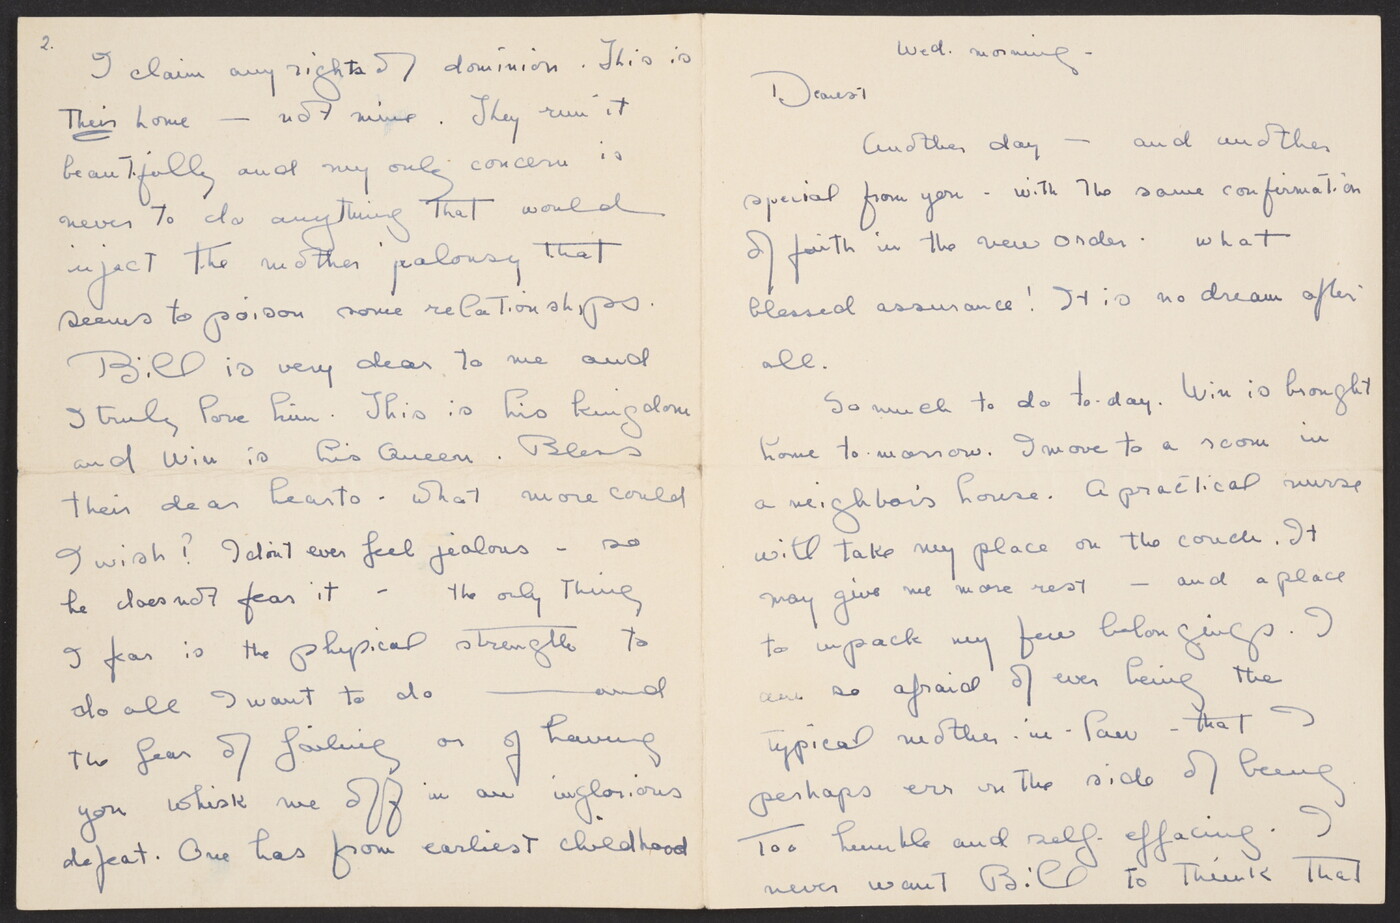 Wed. morning -
Dearest
Another day — and another
special from you - with the same confirmation
of faith in the new order. What
blessed assurance! It is no dream after
all.
So much to do to-day. Win is brought
home to-morrow. I move to a room in
a neighbor's house. A practical nurse
will take my place on the couch. It
may give me more rest — and a place
to unpack my few belongings. I
am so afraid of ever being the
typical mother-in-law - that I
perhaps err on the side of being
too humble and self-effacing. I
never want Bill to think that
2.
I claim any rights of dominion. This is
their home — not mine. They run it
beautifully and my only concern is
never to do anything that would
inject the mother jealousy that
seems to poison some relationships.
Bill is very dear to me and
I truly love him. This is his kingdom
and Win is his Queen. Bless
their dear hearts - what more could
I wish? I don't ever feel jealous - so
he does not fear it - the only thing
I fear is the physical strength to
do all I want to do — and
the fear of failing or of having
you whisk me off in an inglorious
defeat. One has from earliest childhood